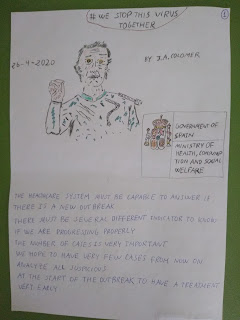 # WE STOP THIS VIRUS
TOGETHER
1
26-4-2020
BY J.A. COLOMER
GOVERNMENT OF
SPAIN
MINISTRY OF
HEALTH, CONSUMP
TION AND SOCIAL
WELFARE
THE HEALTHCARE SYSTEM MUST BE CAPABLE TO ANSWER IF
THERE IS A NEW OUTBREAK
THERE MUST BE SEVERAL DIFFERENT INDICATOR TO KNOW
IF WE ARE PROGRESSING PROPERLY
THE NUMBER OF CASES IS VERY IMPORTANT
WE HOPE TO HAVE VERY FEW CASES FROM NOW ON
ANALYZE ALL SUSPICIOUS
AT THE START OF THE OUTBREAK TO HAVE A TREATMENT
LEFT EARLY